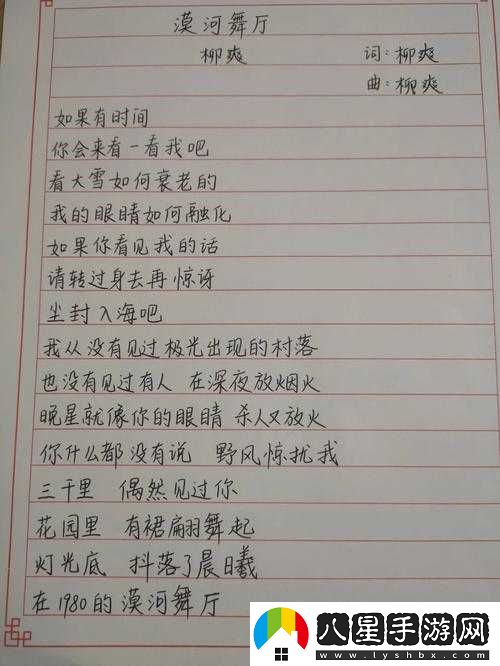 漠河舞厅
柳爽 词:柳爽
曲:柳爽
如果有时间
你会来看一看我吧
看大雪如何衰老的
我的眼睛如何融化
如果你看见我的话
请转过身去再惊讶
尘封入海吧
我从没有见过极光出现的村落
也没有见过有人 在深夜放烟火
晚星就像你的眼睛 杀人又放火
你什么都没有说 野风惊扰我
三千里 偶然见过你
花园里 有裙翩舞起
灯光底 抖落了晨曦
在1980的漠河舞厅
八星手游网
www.lyshbx.com